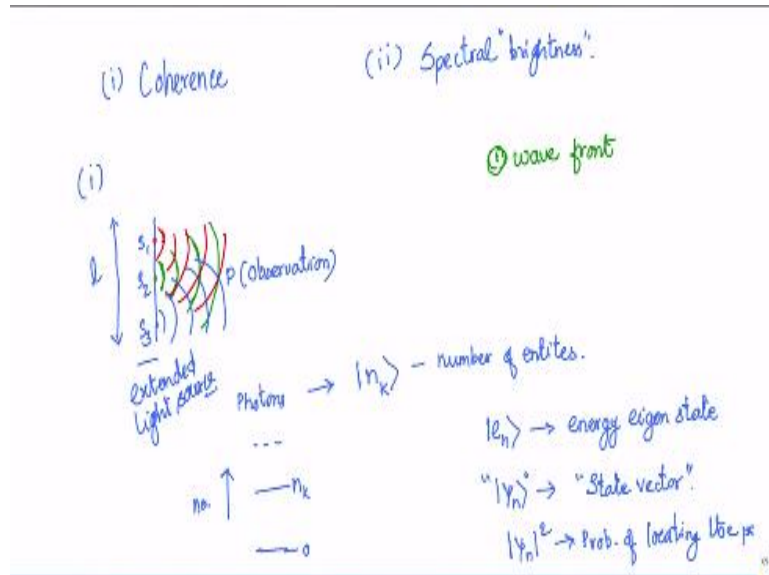 (i) Coherence
(ii) Spectral "brightness".
① wave front
(i)
l
S1
S2
S3
P (Observation)
extended
light source
Photons → |n_k⟩ - number of entites.
---
no. ↑
n_k
0
|e_n⟩ → energy eigen state
"|ψ_n⟩" → "State vector".
|ψ_n|² → Prob. of locating the